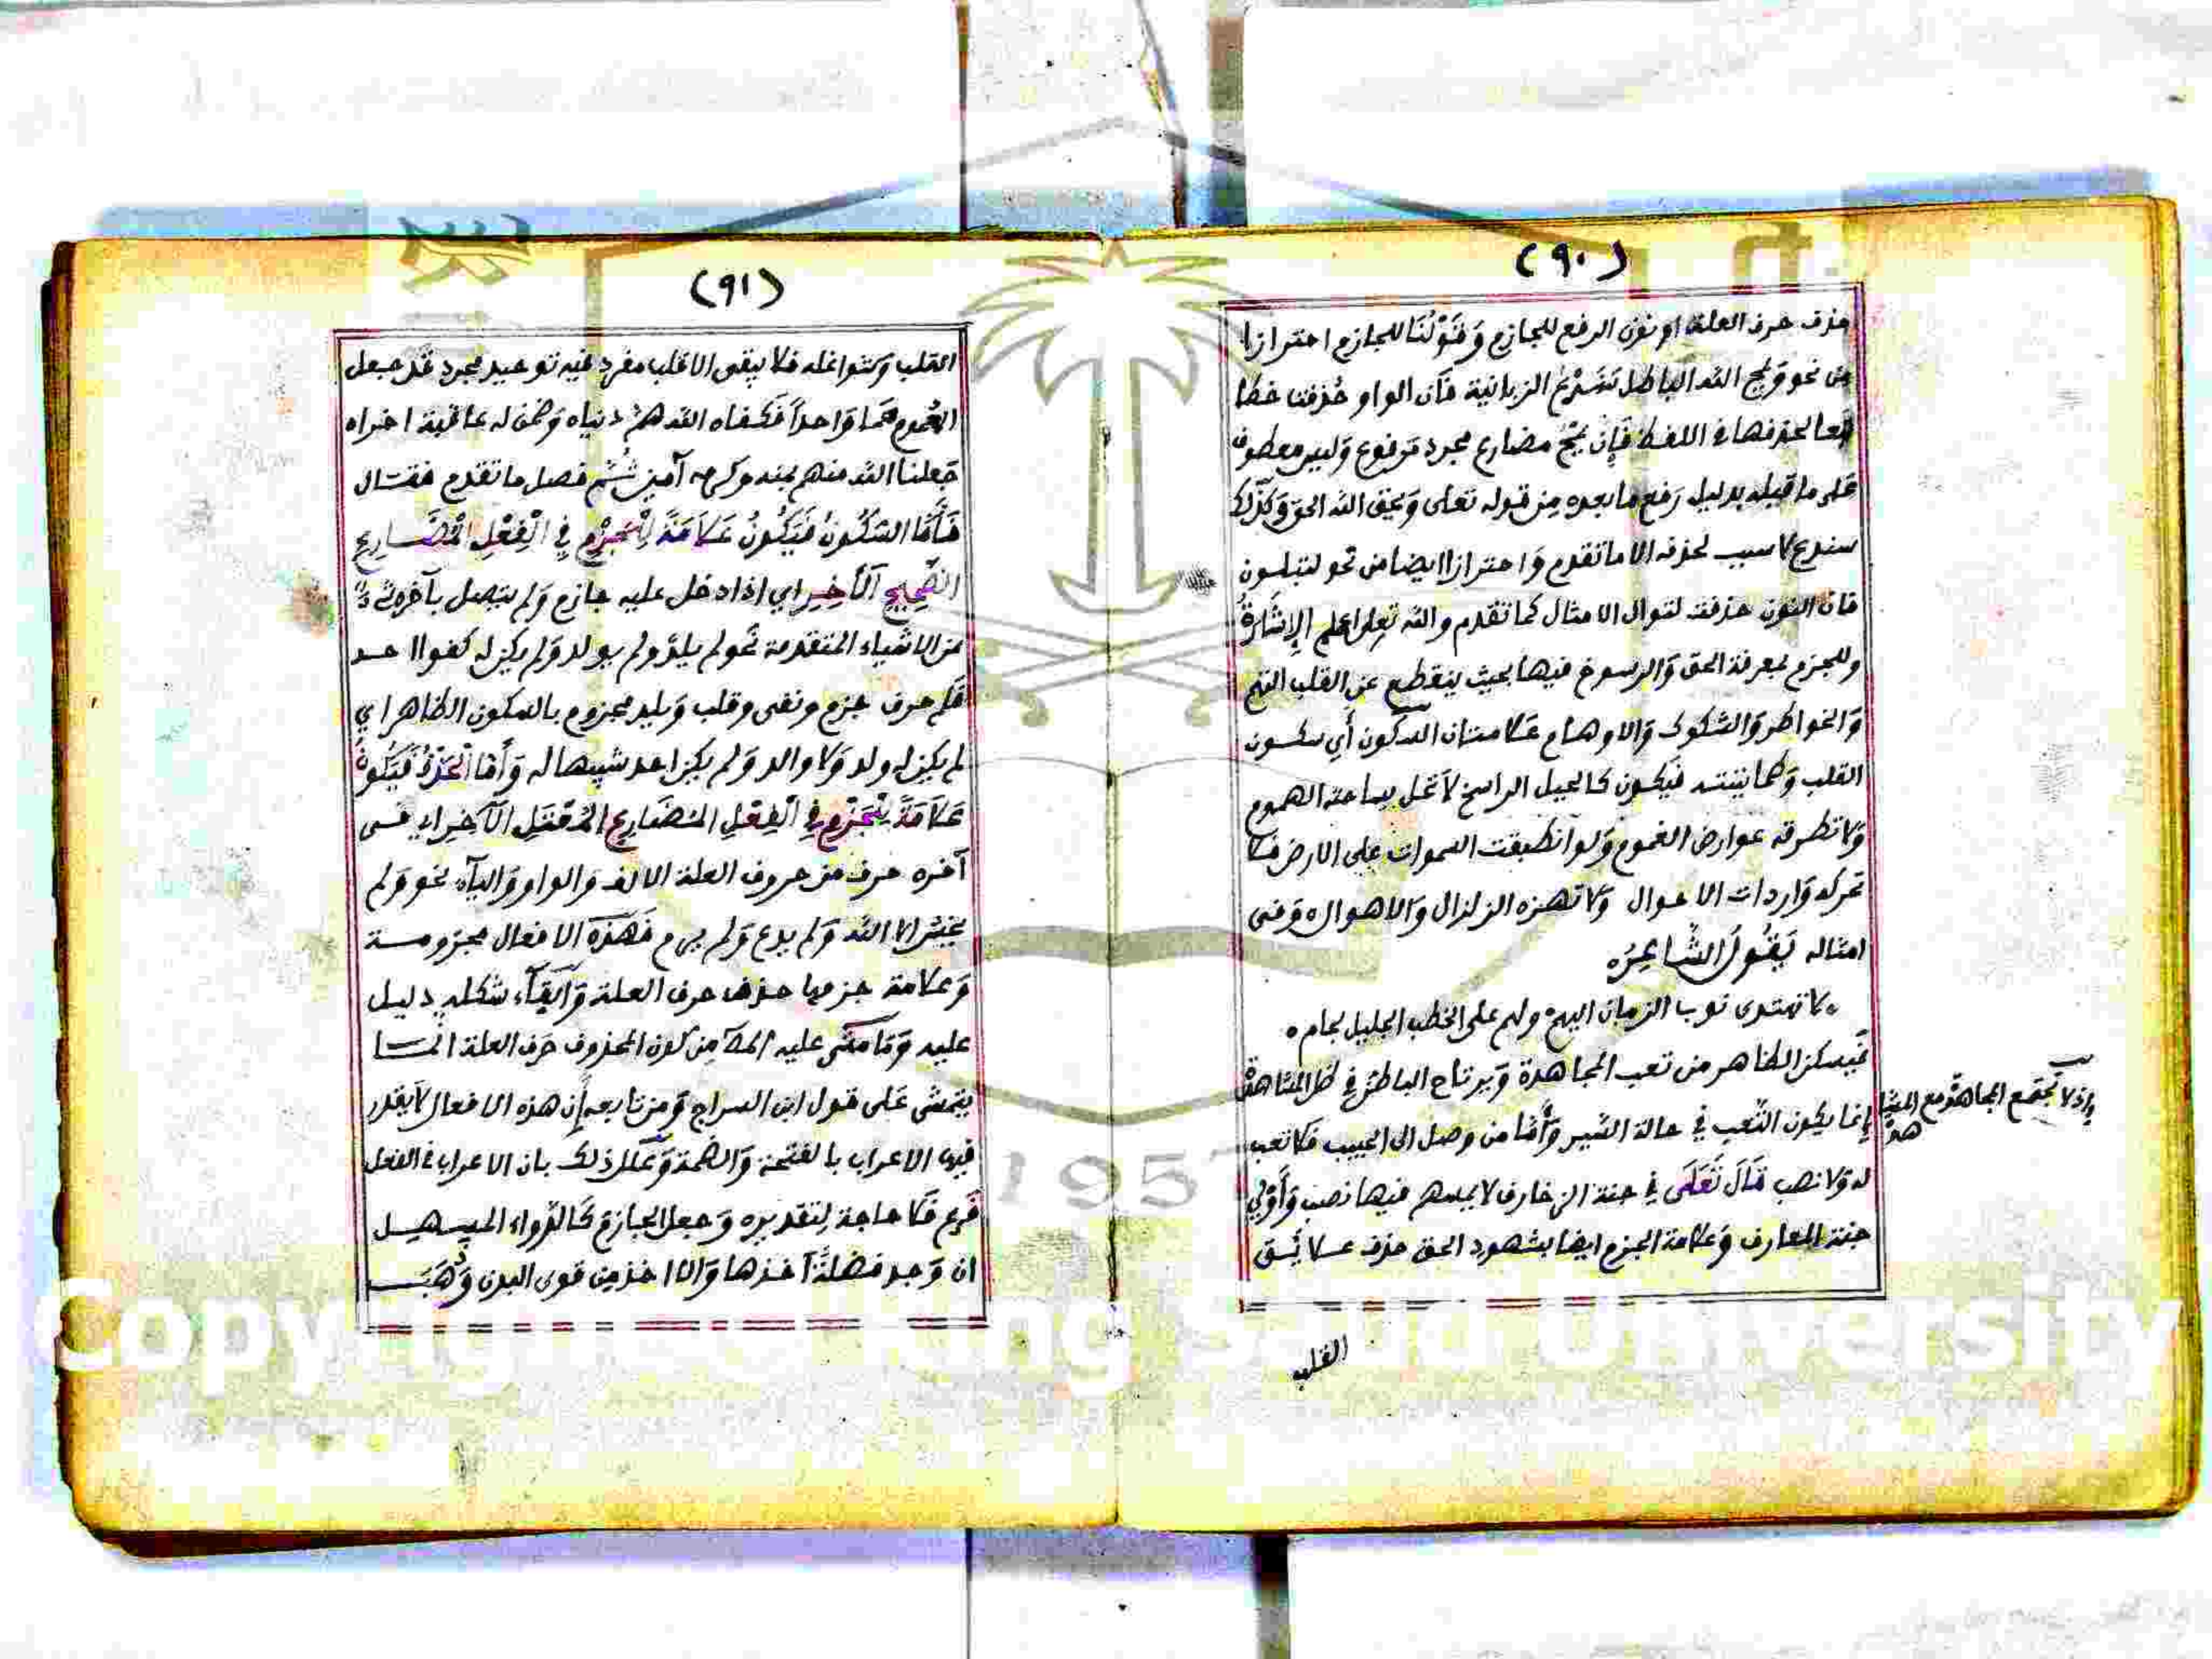 (٩٠)
حذف حرف العلة او نون الرفع للجازم وَقَوْلُنَا للجازم احترازا
من نحو ويمح الله الباطل سَنَدْعُ الزبانية فان الواو حُذفت خطا
تبعا لحذفها في اللفظ فَإِن يمحُ مضارع مجرد مرفوع وَليس معطوف
عَلى ما قبله بدليل رَفع ما بعده مِن قوله تعالى وَيحق الله الحق وَكذلك
سندع لا سبب لحذفه الا ما تقدم وَاحترازا ايضا من نحو لتبلون
فان النون حذفت لتوال الامثال كما تقدم والله تعالى اعلم الإِشَارَةُ
وللجزم بمعرفة الحق وَالرسوخ فيها بحيث ينقطع عن القلب
وَالخواطر وَالشكوك وَالاوهام عَلامتان السكون أَي سكون
القلب وَطمانينته فيَكون كالجبل الراسخ لاَ تحل بساحته الهموم
وَلا تطرقه عوارض الغموم وَلو انطبقت السموات على الارض مَا
تحركه وَاردات الاحوال وَلا تهزه الزلزال وَالاهوال ه وَفى
امثاله يَقُولُ الشَّاعِرُ ه
ه لا تهتدى نوب الزمان اليهم ولهم على الخطب الجليل لجام ه
فَيسكن الظاهر من تعب المجاهدة وَيرتاح الباطن فِي ظل المشاهدة
إِذ لا تجتمع المجاهدة مع المشا
هدة
إِنما يكون التّعب فِي حالة السّير وَأَمّا من وصل الى الحبيب فلا تعب
له وَلا نصب قَالَ تَعَالَى فِي جنة الزخارف لا يمسهم فيها نصب وَأَوْلى
جنة المعارف وَعلامة الجزم ايضا بشهود الحق حذف علائق
القلب
(٩١)
القلب وَشواغله فلا يبقى الا قلب مفرد فيه توحيد مجرد قد جعل
الهُموم هَما وَاحداً فَكفاه الله همَّ دنياه وَضمن له عاقبة اخراه
جَعلنا الله منهم بمنه وكرمه آمين ثُمّ فصل ما تقدم فقال
فَأَمَّا السُّكُونُ فَيَكُونُ عَلاَمَةً لِلْجَزْمِ فِي الْفِعْلِ الْمُضَارِعِ
الصَّحِيحِ الآخِرِ اي اذا دخل عليه جازم وَلم يتصل بآخره شئ
من الاشياء المتقدمة نحو لم يلد ولم يولد وَلم يكن له كفوا احد
فَلم حرف جزم ونفى وقلب وَيلد مجزوم بالسكون الظاهر اي
لم يكن له ولد وَلا والد وَلم يكن احد شبيها له وَأَمّا الْحَذْفُ فَيَكُونُ
عَلاَمَةً لِلْجَزْمِ فِي الْفِعْلِ الْمُضَارِعِ الْمُعْتَلِ الآخِرِ اي فى
آخره حرف من حروف العلة الالف وَالواو وَاليآء نحو وَلم
يخش الا الله وَلم يدع وَلم يرم فَهَذه الافعال مجزومة
وَعلامة جزمها حذف حرف العلة وَابقآء شكله دليل
عليه وَمَا مشى عليه المص مِن كون المحذوف حَرف العلة انما
يتمشى عَلى قول ابن السراج وَمن تابعه إِن هذه الافعال لاَ يقدر
فيها الاعراب بالفتحة وَالضمة وَعَلّل ذلك بان الاعراب في الفعل
فَرع فَلا حاجة لِتقديره وَجعل الجازم كَالدّواء المسهل
ان وَجد فضلَةً أخذها وَالا اخذ مِن قوى البدن وَذهب